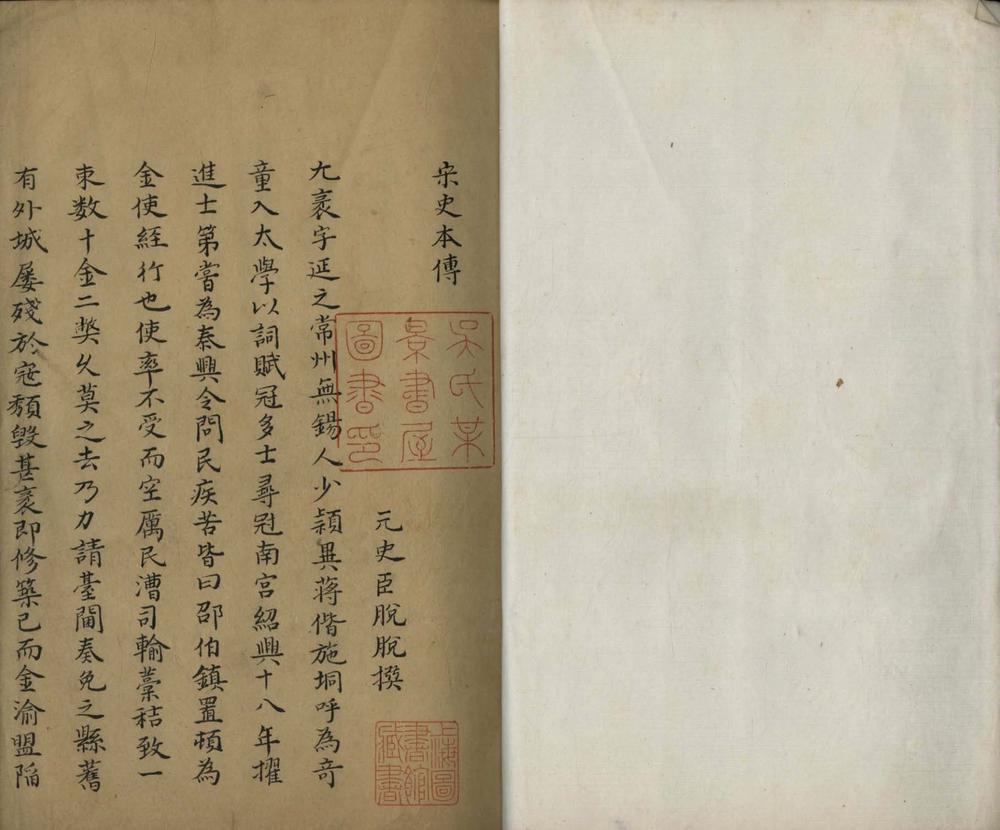 宋史本傳
元史臣脫脫撰
尤袤字延之常州無錫人少頴異蔣偕施坰呼為奇
童入太學以詞賦冠多士尋冠南宮紹興十八年擢
進士第嘗為泰興令問民疾苦皆曰邵伯鎮置頓為
金使経行也使率不受而空厲民漕司輸藁秸致一
束数十金二獘久莫之去乃力請臺閫奏免之縣舊
有外城屡殘於寇頽毀甚袤即修築已而金渝盟陷
吳氏某
景書屋
圖書印
上海圖
書館
藏書